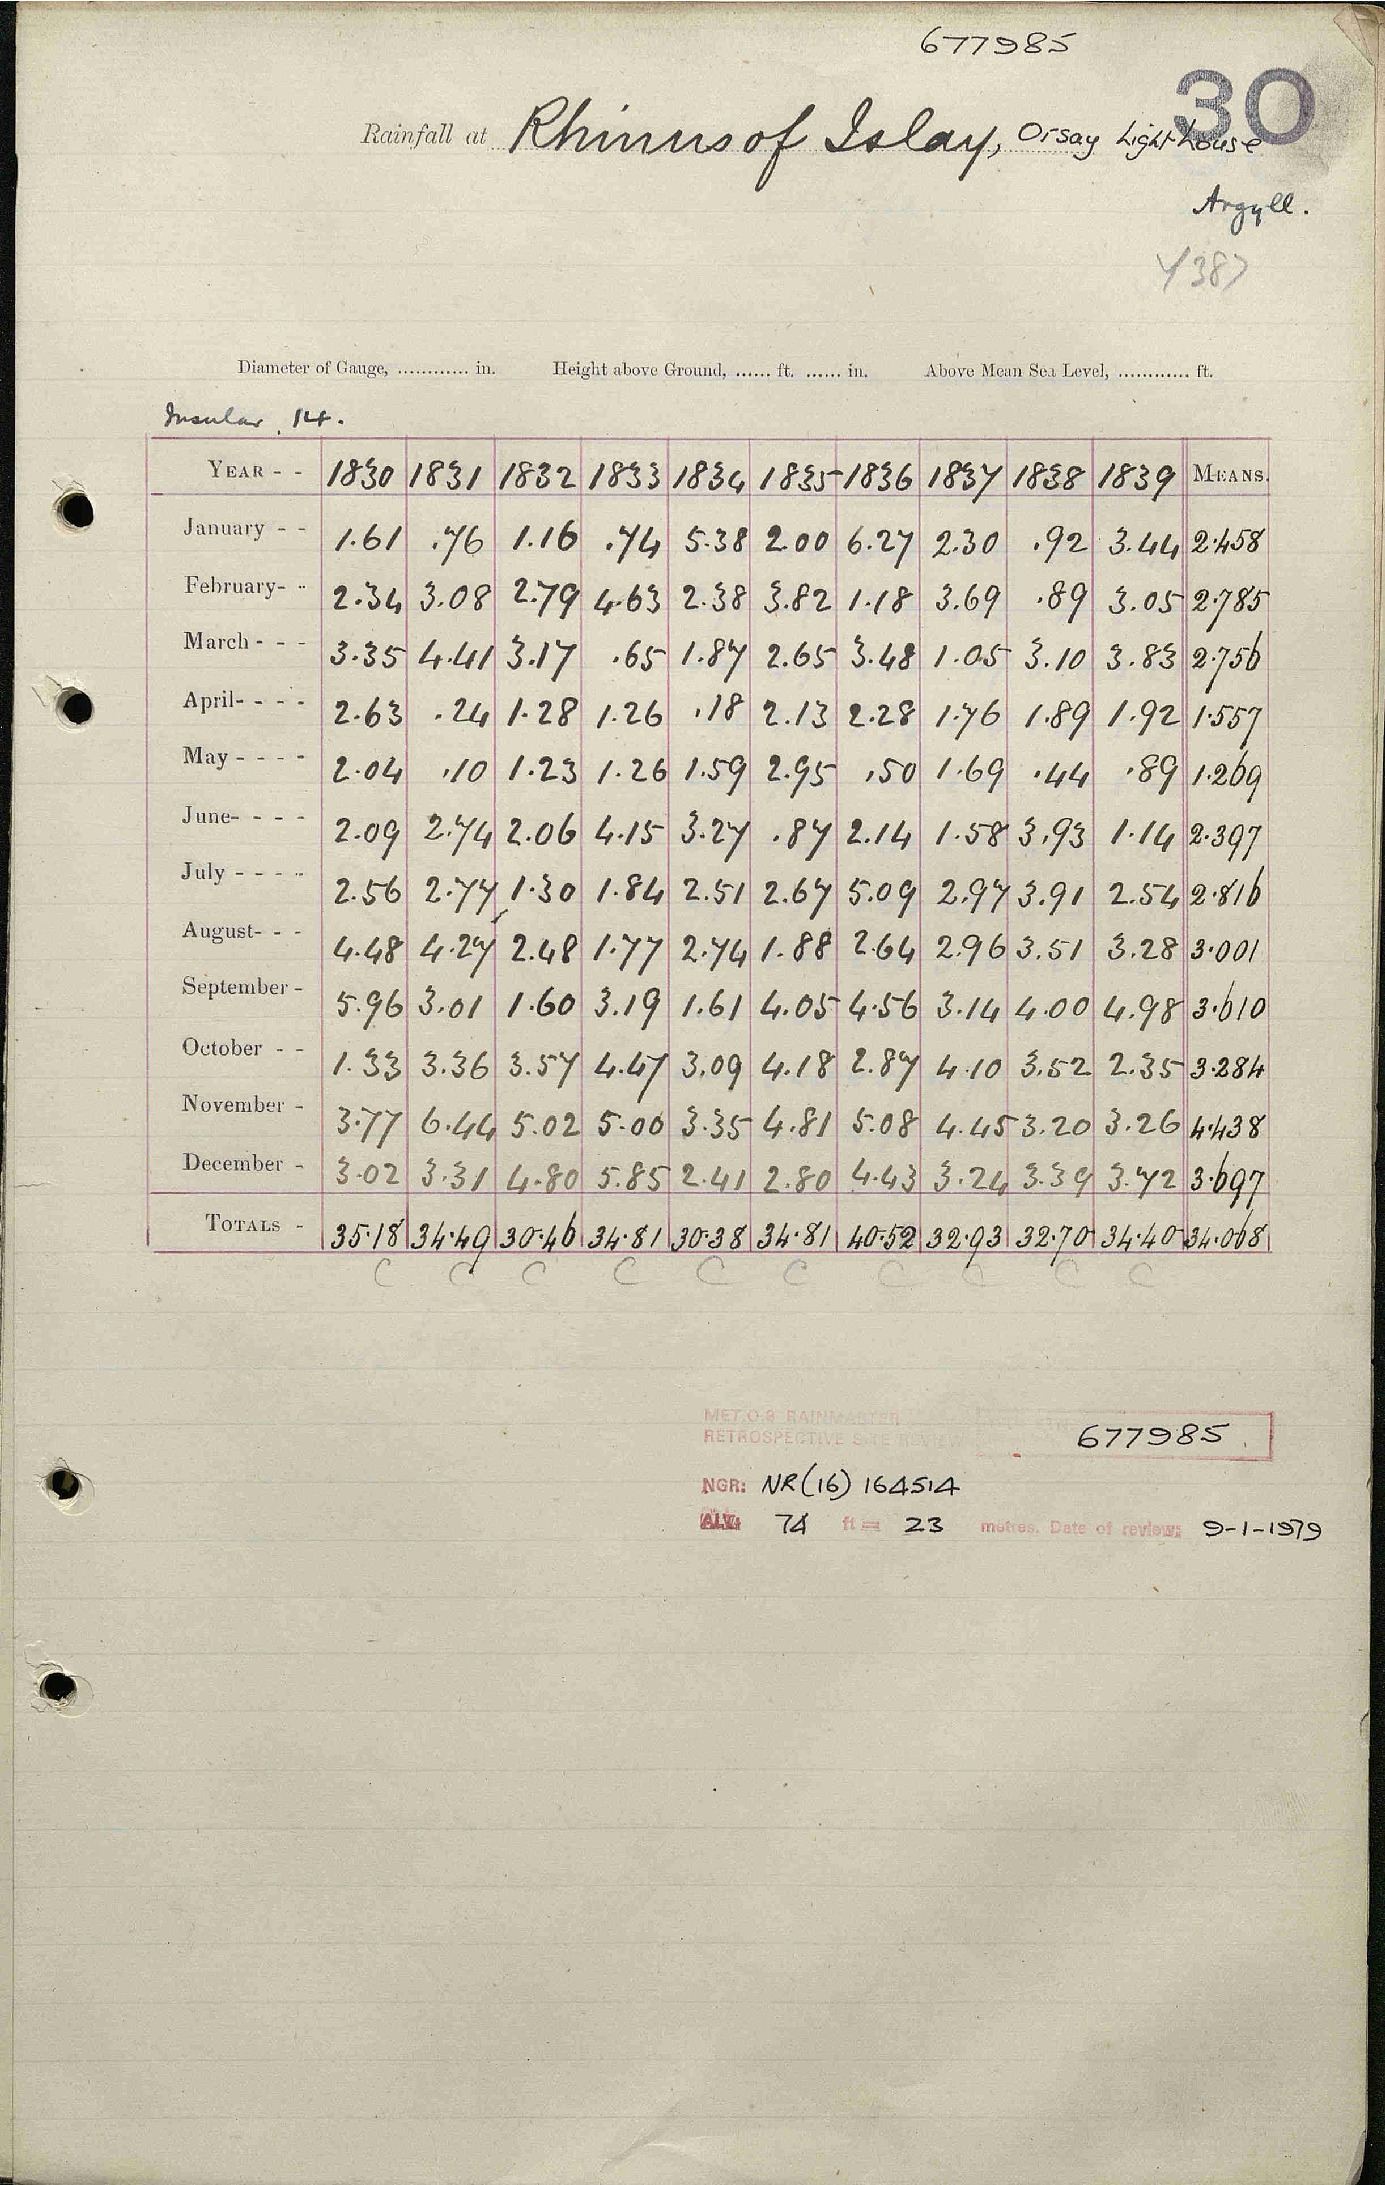 677985
30
Rainfall at Rhinns of Islay, Orsay Lighthouse
Argyll.
4/387
Diameter of Gauge, ............ in. Height above Ground, ...... ft. ...... in. Above Mean Sea Level, ............ ft.
Insular 14.
YEAR - - 1830 1831 1832 1833 1834 1835 1836 1837 1838 1839 MEANS.
January - - 1.61 .76 1.16 .74 5.38 2.00 6.27 2.30 .92 3.44 2.458
February- - 2.34 3.08 2.79 4.63 2.38 3.82 1.18 3.69 .89 3.05 2.785
March - - - 3.35 4.41 3.17 .65 1.87 2.65 3.48 1.05 3.10 3.83 2.756
April- - - - 2.63 .24 1.28 1.26 .18 2.13 2.28 1.76 1.89 1.92 1.557
May - - - - 2.04 .10 1.23 1.26 1.59 2.95 .50 1.69 .44 .89 1.269
June- - - - 2.09 2.74 2.06 4.15 3.27 .87 2.14 1.58 3.93 1.14 2.397
July - - - - 2.56 2.77 1.30 1.84 2.51 2.67 5.09 2.97 3.91 2.54 2.816
August- - - 4.48 4.27 2.48 1.77 2.74 1.88 2.64 2.96 3.51 3.28 3.001
September - 5.96 3.01 1.60 3.19 1.61 4.05 4.56 3.14 4.00 4.98 3.610
October - - 1.33 3.36 3.57 4.47 3.09 4.18 2.87 4.10 3.52 2.35 3.284
November - 3.77 6.44 5.02 5.00 3.35 4.81 5.08 4.45 3.20 3.26 4.438
December - 3.02 3.31 4.80 5.85 2.41 2.80 4.43 3.24 3.39 3.72 3.697
TOTALS - 35.18 34.49 30.46 34.81 30.38 34.81 40.52 32.93 32.70 34.40 34.068
C C C C C C C C C C
MET.O.8 RAINMASTER
RETROSPECTIVE SITE REVIEW 677985
NGR: NR(16) 164514
ALT: 74 ft = 23 metres. Date of review: 9-1-1979